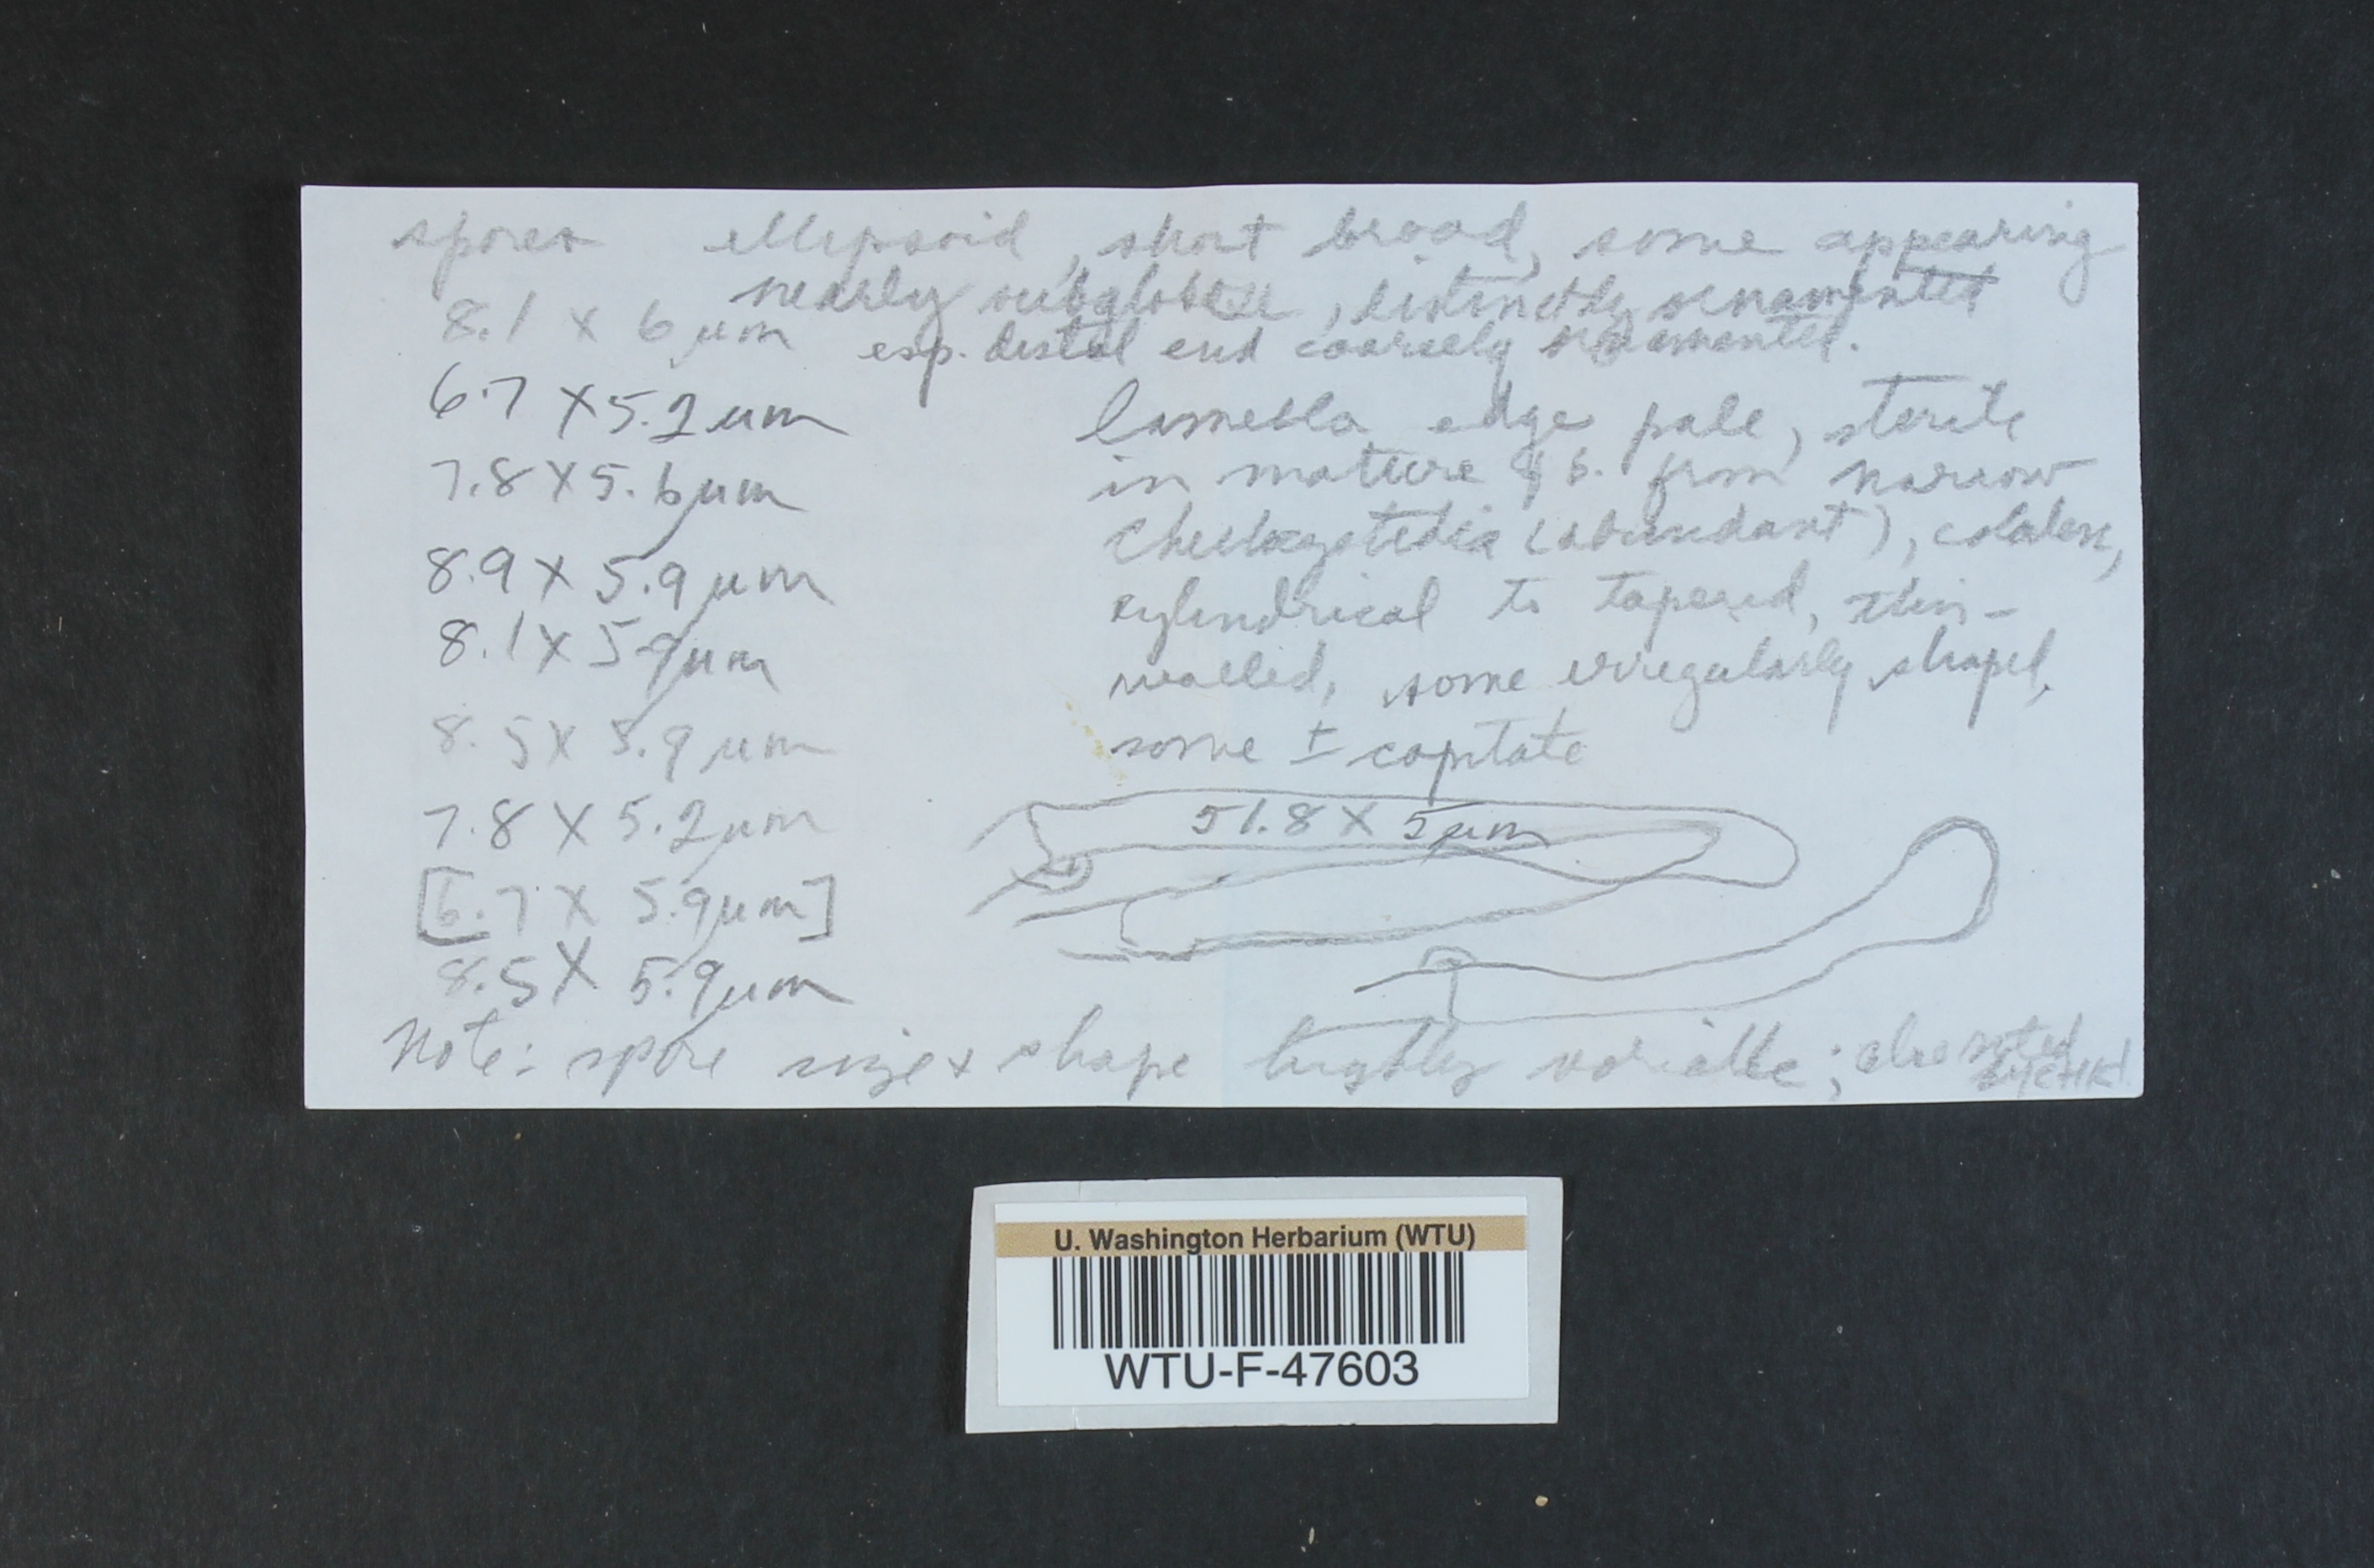 spores ellipsoid, short broad, some appearing
nearly subglobose, distinctly ornamented
8.1 x 6 µm esp. distal end coarsely ornamented.
6.7 x 5.2 µm
7.8 x 5.6 µm
8.9 x 5.9 µm
8.1 x 5.9 µm
8.5 x 5.9 µm
7.8 x 5.2 µm
[6.7 x 5.9 µm]
8.5 x 5.9 µm
lamella edge pale, sterile
in mature from narrow
cheilocystidia (abundant), colorless,
cylindrical to tapered, thin-
walled, some irregularly shaped,
some ± capitate
51.8 x 5 µm
Note: spore size + shape highly variable; also noted
U. Washington Herbarium (WTU)
WTU-F-47603